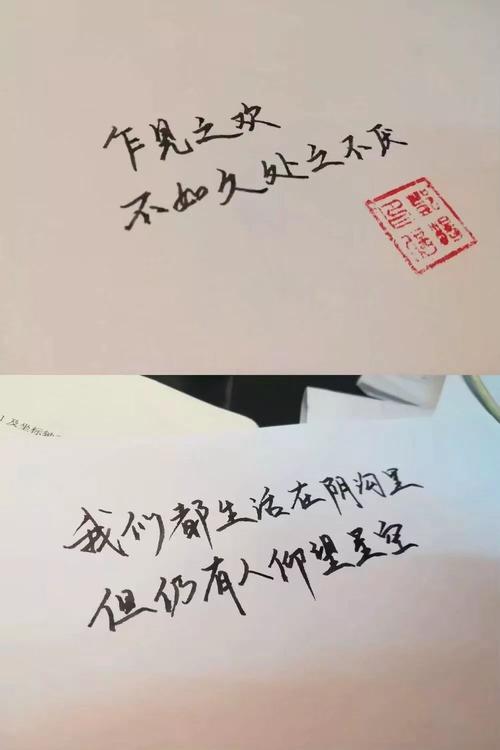 乍见之欢
不如久处之不厌
及坐标轴
我们都生活在阴沟里
但仍有人仰望星空